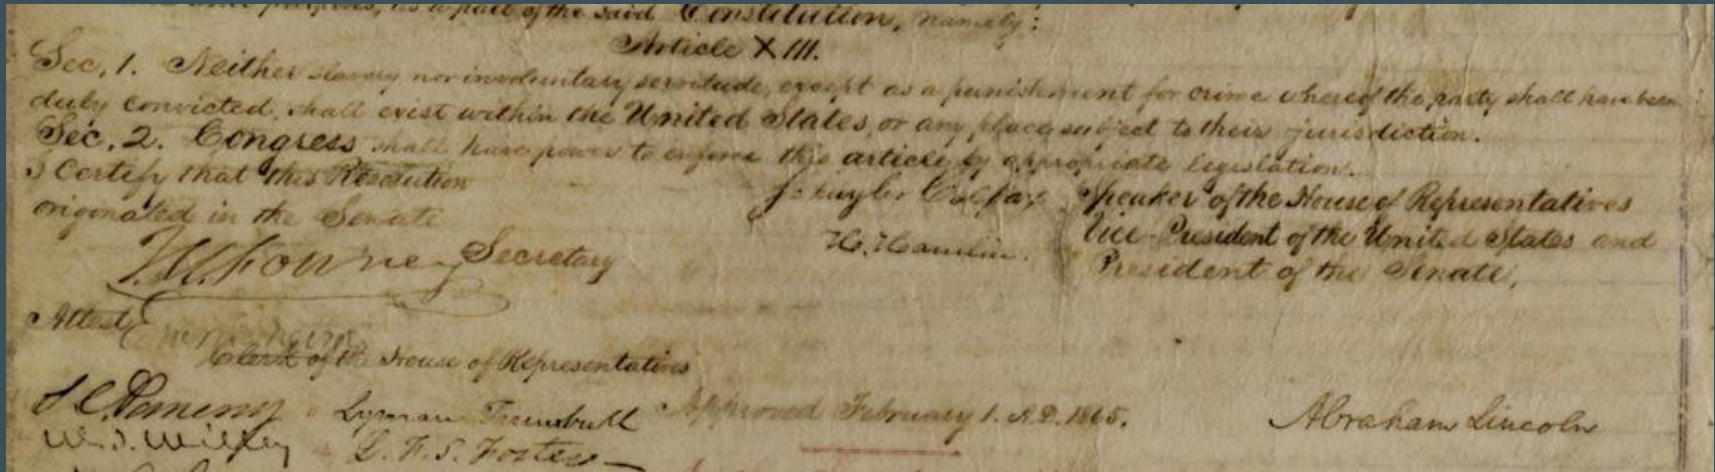 purposes, as a part of the said Constitution, namely:
Article XIII.
Sec, 1. Neither slavery nor involuntary servitude, except as a punishment for crime whereof the party shall have been
duly convicted, shall exist within the United States, or any place subject to their jurisdiction.
Sec, 2. Congress shall have power to enforce this article by appropriate legislation.
I Certify that this Resolution
originated in the Senate
Schuyler Colfax Speaker of the House of Representatives
H. Hamlin. Vice-President of the United States and
President of the Senate,
Secretary
Attest
Clerk of the House of Representatives
Lyman Trumbull Approved February 1. A.D. 1865. Abraham Lincoln
W. T. Willey L. F. S. Foster